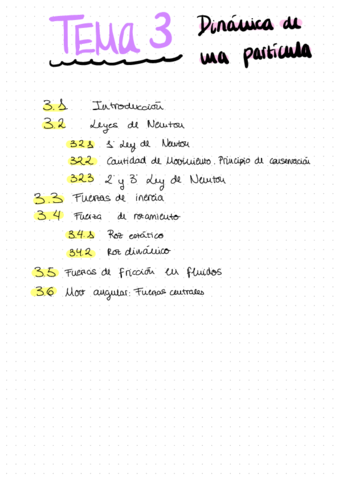 TEMA 3
Dinámica de
una partícula
3.1 Introducción
3.2 Leyes de Newton
3.2.1 1ª Ley de Newton
3.2.2 Cantidad de Movimiento. Principio de conservación
3.2.3 2ª y 3ª Ley de Newton
3.3 Fuerzas de inercia
3.4 Fuerza de rozamiento
3.4.1 Roz estático
3.4.2 Roz dinámico
3.5 Fuerzas de fricción en fluidos
3.6 Mov angular: Fuerzas centrales